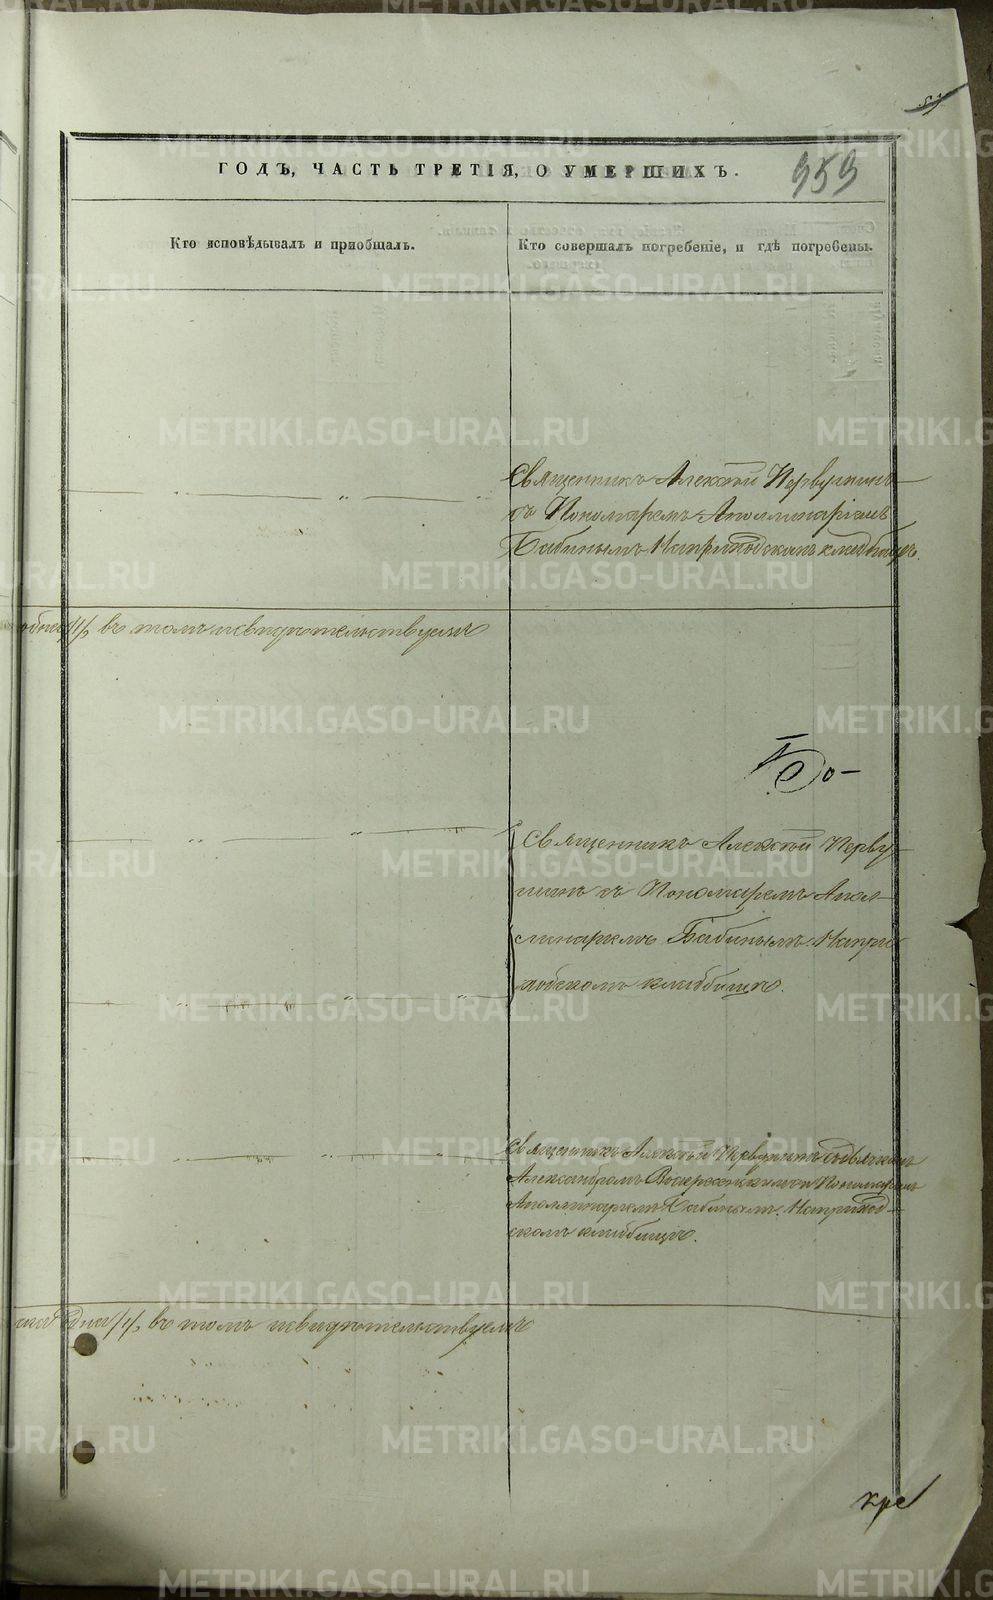 959
ГОДЪ, ЧАСТЬ ТРЕТІЯ, О УМЕРШИХЪ.
Кто исповѣдывалъ и приобщалъ.
Кто совершалъ погребеніе, и гдѣ погребены.
Священникъ Алексѣй Первушинъ
съ Пономаремъ Аполлинаріемъ
Бабинымъ. На приходскомъ кладбищѣ.
въ томъ и свидѣтельствуемъ
Священникъ Алексѣй Перву-
шинъ съ Пономаремъ Апол-
линаремъ Бабинымъ. На при-
ходскомъ кладбищѣ.
Священникъ Алексѣй Первушинъ съ Дьячкомъ
Александромъ Воскресенскимъ и Пономаремъ
Аполлинаремъ Бабинымъ. На приход-
скомъ кладбищѣ.
въ томъ и свидѣтельствуемъ
кре
METRIKI.GASO-URAL.RU